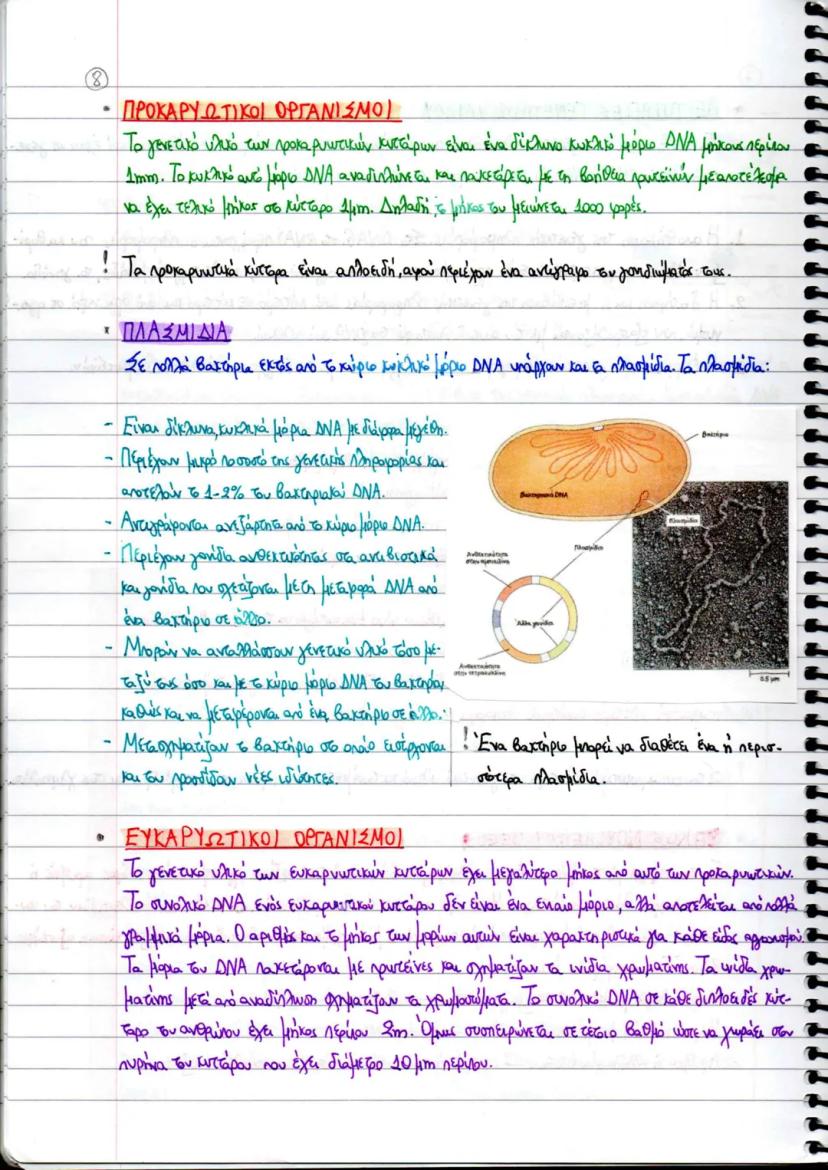 8
• ΠΡΟΚΑΡΥΩΤΙΚΟΙ ΟΡΓΑΝΙΣΜΟΙ
Το γενετικό υλικό των προκαρυωτικών κυττάρων είναι ένα δίκλωνο κυκλικό μόριο DNA μήκους περίπου
1mm. Το κυκλικό αυτό μόριο DNA αναδιπλώνεται και πακετάρεται με τη βοήθεια πρωτεϊνών με αποτέλεσμα
να έχει τελικό μήκος στο κύτταρο 1μm. Δηλαδή το μήκος του μειώνεται 1000 φορές.
! Τα προκαρυωτικά κύτταρα είναι απλοειδή, αφού περιέχουν ένα αντίγραφο του γονιδιώματός τους.
• ΠΛΑΣΜΙΔΙΑ
Σε πολλά βακτήρια εκτός από το κύριο κυκλικό μόριο DNA υπάρχουν και τα πλασμίδια. Τα πλασμίδια:
- Είναι δίκλωνα, κυκλικά μόρια DNA με διάφορα μεγέθη.
- Περιέχουν μικρό ποσοστό της γενετικής πληροφορίας και
αποτελούν το 1-2% του βακτηριακού DNA.
- Αντιγράφονται ανεξάρτητα από το κύριο μόριο DNA.
- Περιέχουν γονίδια ανθεκτικότητας στα αντιβιοτικά
και γονίδια που σχετίζονται με τη μεταφορά DNA από
ένα βακτήριο σε άλλο.
- Μπορούν να ανταλλάσσουν γενετικό υλικό τόσο με-
ταξύ τους όσο και με το κύριο μόριο DNA του βακτηρίου
καθώς και να μεταφέρονται από ένα βακτήριο σε άλλο.
- Μετασχηματίζουν το βακτήριο στο οποίο εισέρχονται
και του προσδίδουν νέες ιδιότητες.
Βακτήριο
Βακτηριακό DNA
Πλασμίδιο
Πλασμίδιο
Ανθεκτικότητα
στην αμπικιλίνη
Άλλα γονίδια
Ανθεκτικότητα
στην τετρακυκλίνη
0.5 μm
! Ένα βακτήριο μπορεί να διαθέτει ένα ή περισ-
σότερα πλασμίδια.
• ΕΥΚΑΡΥΩΤΙΚΟΙ ΟΡΓΑΝΙΣΜΟΙ
Το γενετικό υλικό των ευκαρυωτικών κυττάρων έχει μεγαλύτερο μήκος από αυτό των προκαρυωτικών.
Το συνολικό DNA ενός ευκαρυωτικού κυττάρου δεν είναι ένα ενιαίο μόριο, αλλά αποτελείται από πολλά
γραμμικά μόρια. Ο αριθμός και το μήκος των μορίων αυτών είναι χαρακτηριστικά για κάθε είδος οργανισμού.
Τα μόρια του DNA πακετάρονται με πρωτεΐνες και σχηματίζουν τα ινίδια χρωματίνης. Τα ινίδια χρω-
ματίνης μετά από αναδίπλωση σχηματίζουν τα χρωμοσώματα. Το συνολικό DNA σε κάθε διπλοειδές κύτ-
ταρο του ανθρώπου έχει μήκος περίπου 2m. Όμως συσπειρώνεται σε τέτοιο βαθμό ώστε να χωράει στον
πυρήνα του κυττάρου που έχει διάμετρο 10μm περίπου.